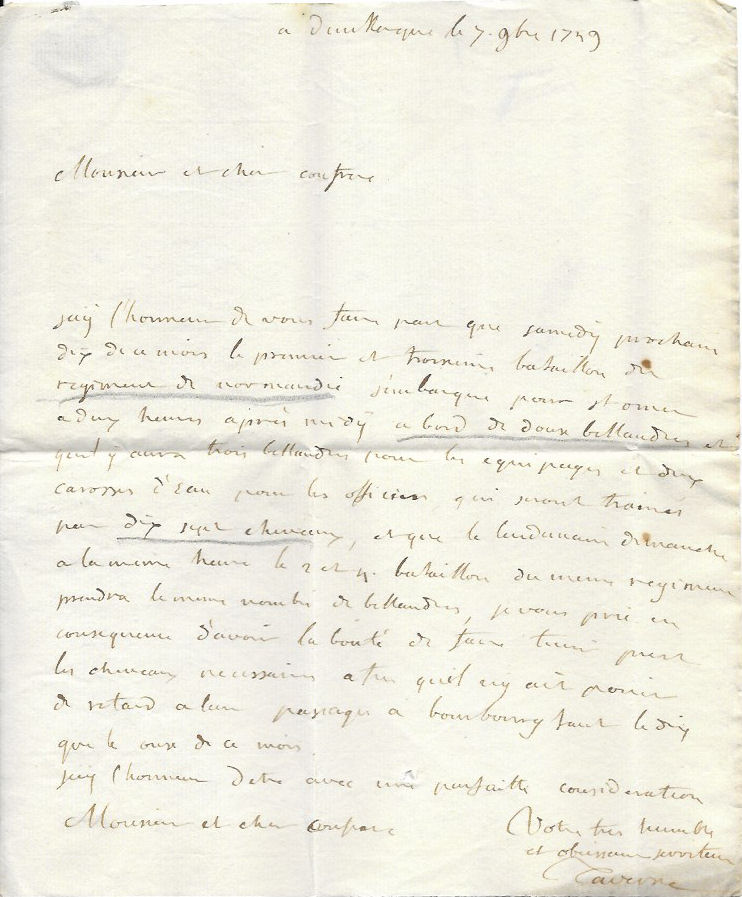 a dunkerque le 7. 9bre 1749
Monsieur et cher confrere
jaÿ l'honneur de vous faire part que samedÿ prochain
dix de ce mois le premier et troisieme bataillon du
regiment de normandie s'embarque pour st omer
a deux heures aprés midÿ a bord de douze bellandres et
quil y aura trois bellandres pour les equipages et deux
carosses d'Eau pour les officiers qui seront trainés
par dix sept chevaux, et que le lendemain dimanche
a la meme heure le 2 et 4. bataillon du meme regiment
prendra le meme nombre de bellandres, je vous prie en
consequence d'avoir la bonté de faire tenir prest
les chevaux necessaires afin quil ny ait point
de retard a leur passage a bourbourg tant le dix
que le onze de ce mois.
jaÿ l'honneur detre avec une parfaitte consideration
Monsieur et cher confrere
Votre tres humble
et obeissant serviteur
Taverne